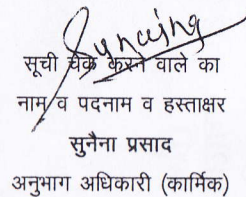 सूची चेक करने वाले का
नाम व पदनाम व हस्ताक्षर
सुनैना प्रसाद
अनुभाग अधिकारी (कार्मिक)